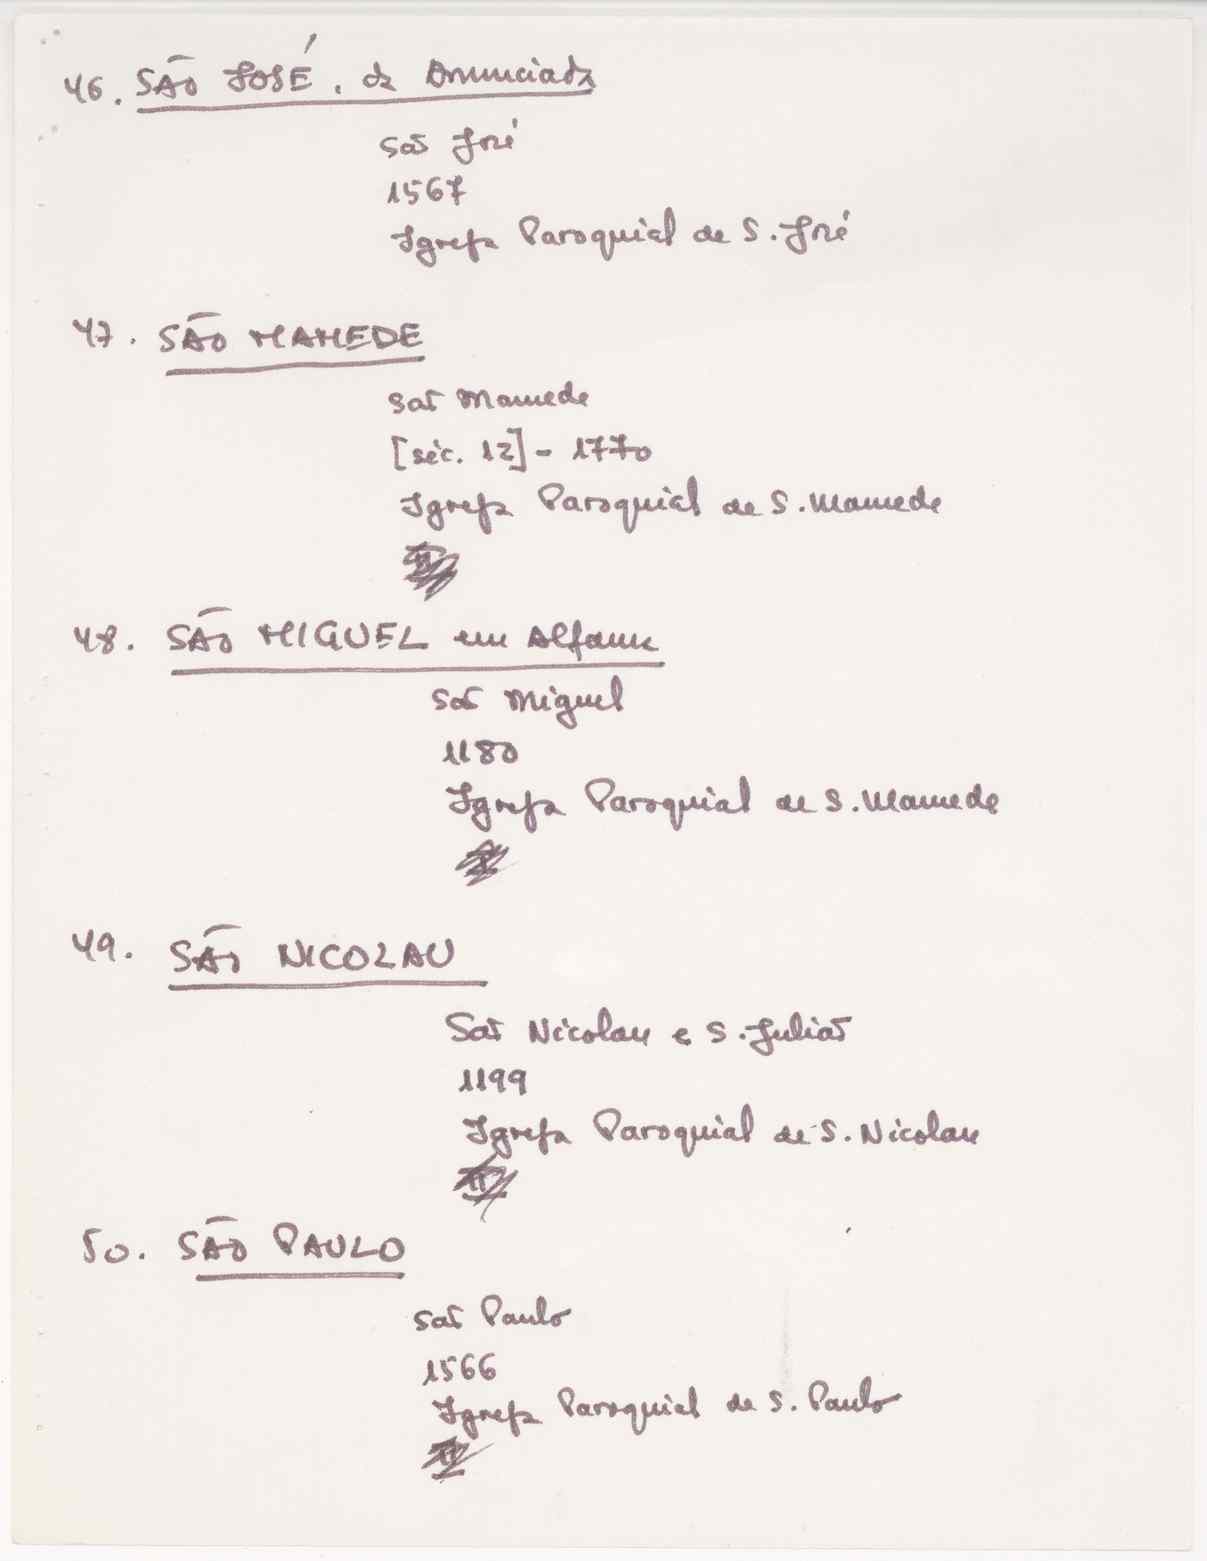 46. SÃO JOSÉ, da Anunciada
São José
1567
Igreja Paroquial de S. José
47. SÃO MAMEDE
São Mamede
[séc. 12] - 1770
Igreja Paroquial de S. Mamede
48. SÃO MIGUEL em Alfama
São Miguel
1180
Igreja Paroquial de S. Mamede
49. SÃO NICOLAU
São Nicolau e S. Julião
1199
Igreja Paroquial de S. Nicolau
50. SÃO PAULO
São Paulo
1566
Igreja Paroquial de S. Paulo